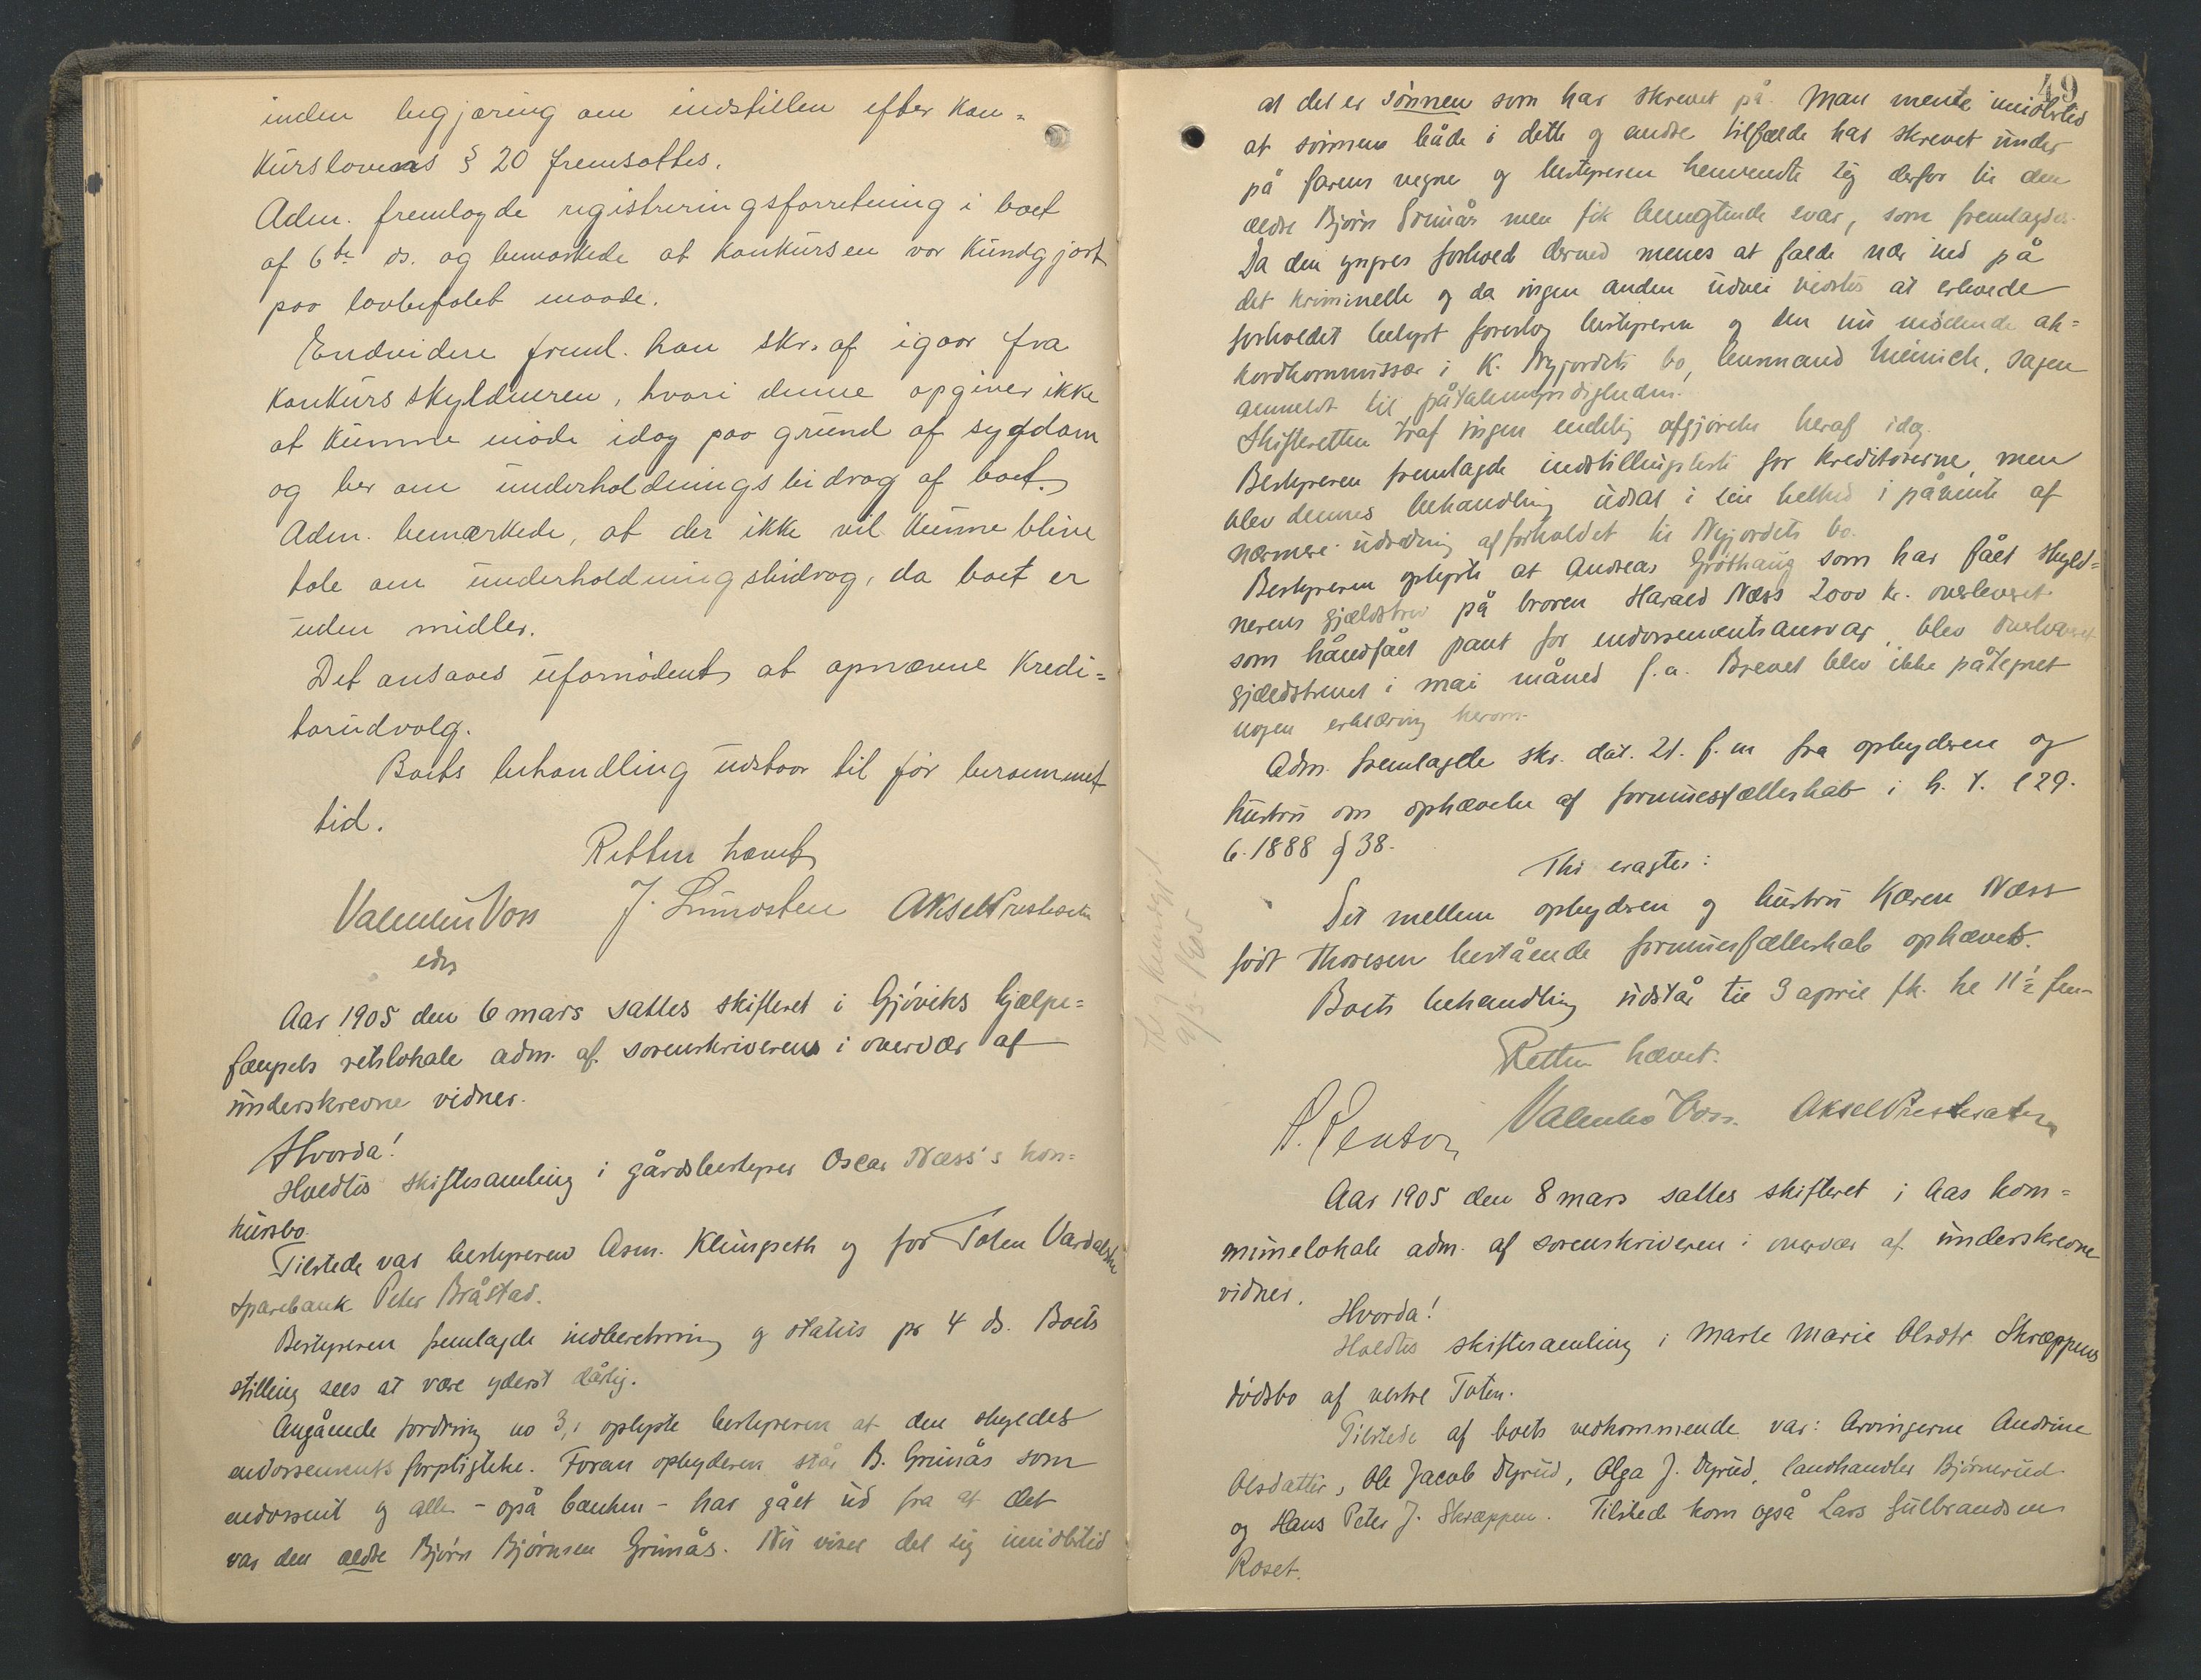 inden begjæring om indstillen efter kon-
kurslovens § 20 fremsattes.
Adm. fremlagde registreringsforretning i boet
af 6te ds. og bemærkede at konkursen var kundgjort
paa lovbefalet maade.
Endvidere freml. han skr. af igaar fra
konkursskyldneren, hvori denne opgiver ikke
at kunne møde idag paa grund af sygdom
og ber om underholdningsbidrag af boet.
Adm. bemærkede, at der ikke vil kunne blive
tale om underholdningsbidrag, da boet er
uden midler.
Det ansaaes ufornødent at opnævne kredi-
torudvalg.
Boets behandling udstaar til før berammet
tid.
Retten hævet
Valentin Voss J. Lundsten Aksel Presteseter
eds
Aar 1905 den 6 mars sattes skifteret i Gjøviks hjælpe-
fængsels retslokale adm. af sorenskriveren i overvær af
underskrevne vidner.
Hvorda!
Holdtes skiftesamling i gårdsbestyrer Oscar Næss's kon-
kursbo.
Tilstede var bestyreren Asm. Klungseth og for Toten Vardalske
sparebank Peter Bråstad.
Bestyreren fremlagde indberetning og status pr 4 ds. Boets
stilling sees at være yderst dårlig.
Angående fordring no 3, oplyste bestyreren at den skyldes
endossements forpligtelse. Foran opbyderen står B. Grinås som
endossent og alle - også banken - har gået ud fra at det
var den ældre Bjørn Bjørnsen Grinås. Nu viser det sig imidlertid
49
at det er sønnen som har skrevet på. Man mente imidlertid
at sønnen både i dette og andre tilfælde har skrevet under
på farens vegne og bestyreren henvendte sig derfor til den
ældre Bjørn Grinås men fik benegtende svar, som fremlagdes.
Da den yngres forhold derved menes at falde nær ind på
det kriminelle og da ingen anden udvei vidstes at erholde
forholdet belyst foreslog bestyreren og den nu mødende ak-
kordkommissær i K. Nyjordets bo, lensmand Heinich, sagen
anmeldt til påtalemyndigheden.
Skifteretten traf ingen endelig afgjørelse heraf idag.
Bestyreren fremlagde indstillingsliste for kreditorerne, men
blev dennes behandling udsat i sin helhed i påvente af
nærmere udredning af forholdet til Nyjordets bo.
Bestyreren oplyste at Andreas Grøthaug som har fået skyld-
nerens gjældsbrev på broren Harald Næss 2000 kr. overleveret
som håndfået pant for endossementsansvar, blev overleveret
gjældsbrevet i mai måned f.a. Brevet blev ikke påtegnet
nogen erklæring herom.
Adm. fremlagde skr. dat. 21. f. m fra opbyderen og
hustru om ophævelse af formuesfællesskab i h. t. l 29.
6. 1888 § 38.
Thi eragtes:
Det mellem opbyderen og hustru Karen Næss
født Thoresen bestående formuesfællesskab ophæves.
Boets behandling udstår til 3 april fk. kl 11½ fm.
Retten hævet.
Valentin Voss. Aksel Presteseter
Aar 1905 den 8 mars sattes skifteret i Aas kom-
munelokale adm. af sorenskriveren i overvær af underskrevne
vidner.
Hvorda!
Holdtes skiftesamling i Marte Marie Olsdtr Skræppens
dødsbo af vestre Toten.
Tilstede af boets vedkommende var: Arvingerne Andrine
Olsdatter, Ole Jacob Dyrud, Olga J. Dyrud, landhandler Bjørnerud
og Hans Peter J. Skræppen. Tilstede kom også Lars Gulbrandsen
Roset.
9/3. 1905